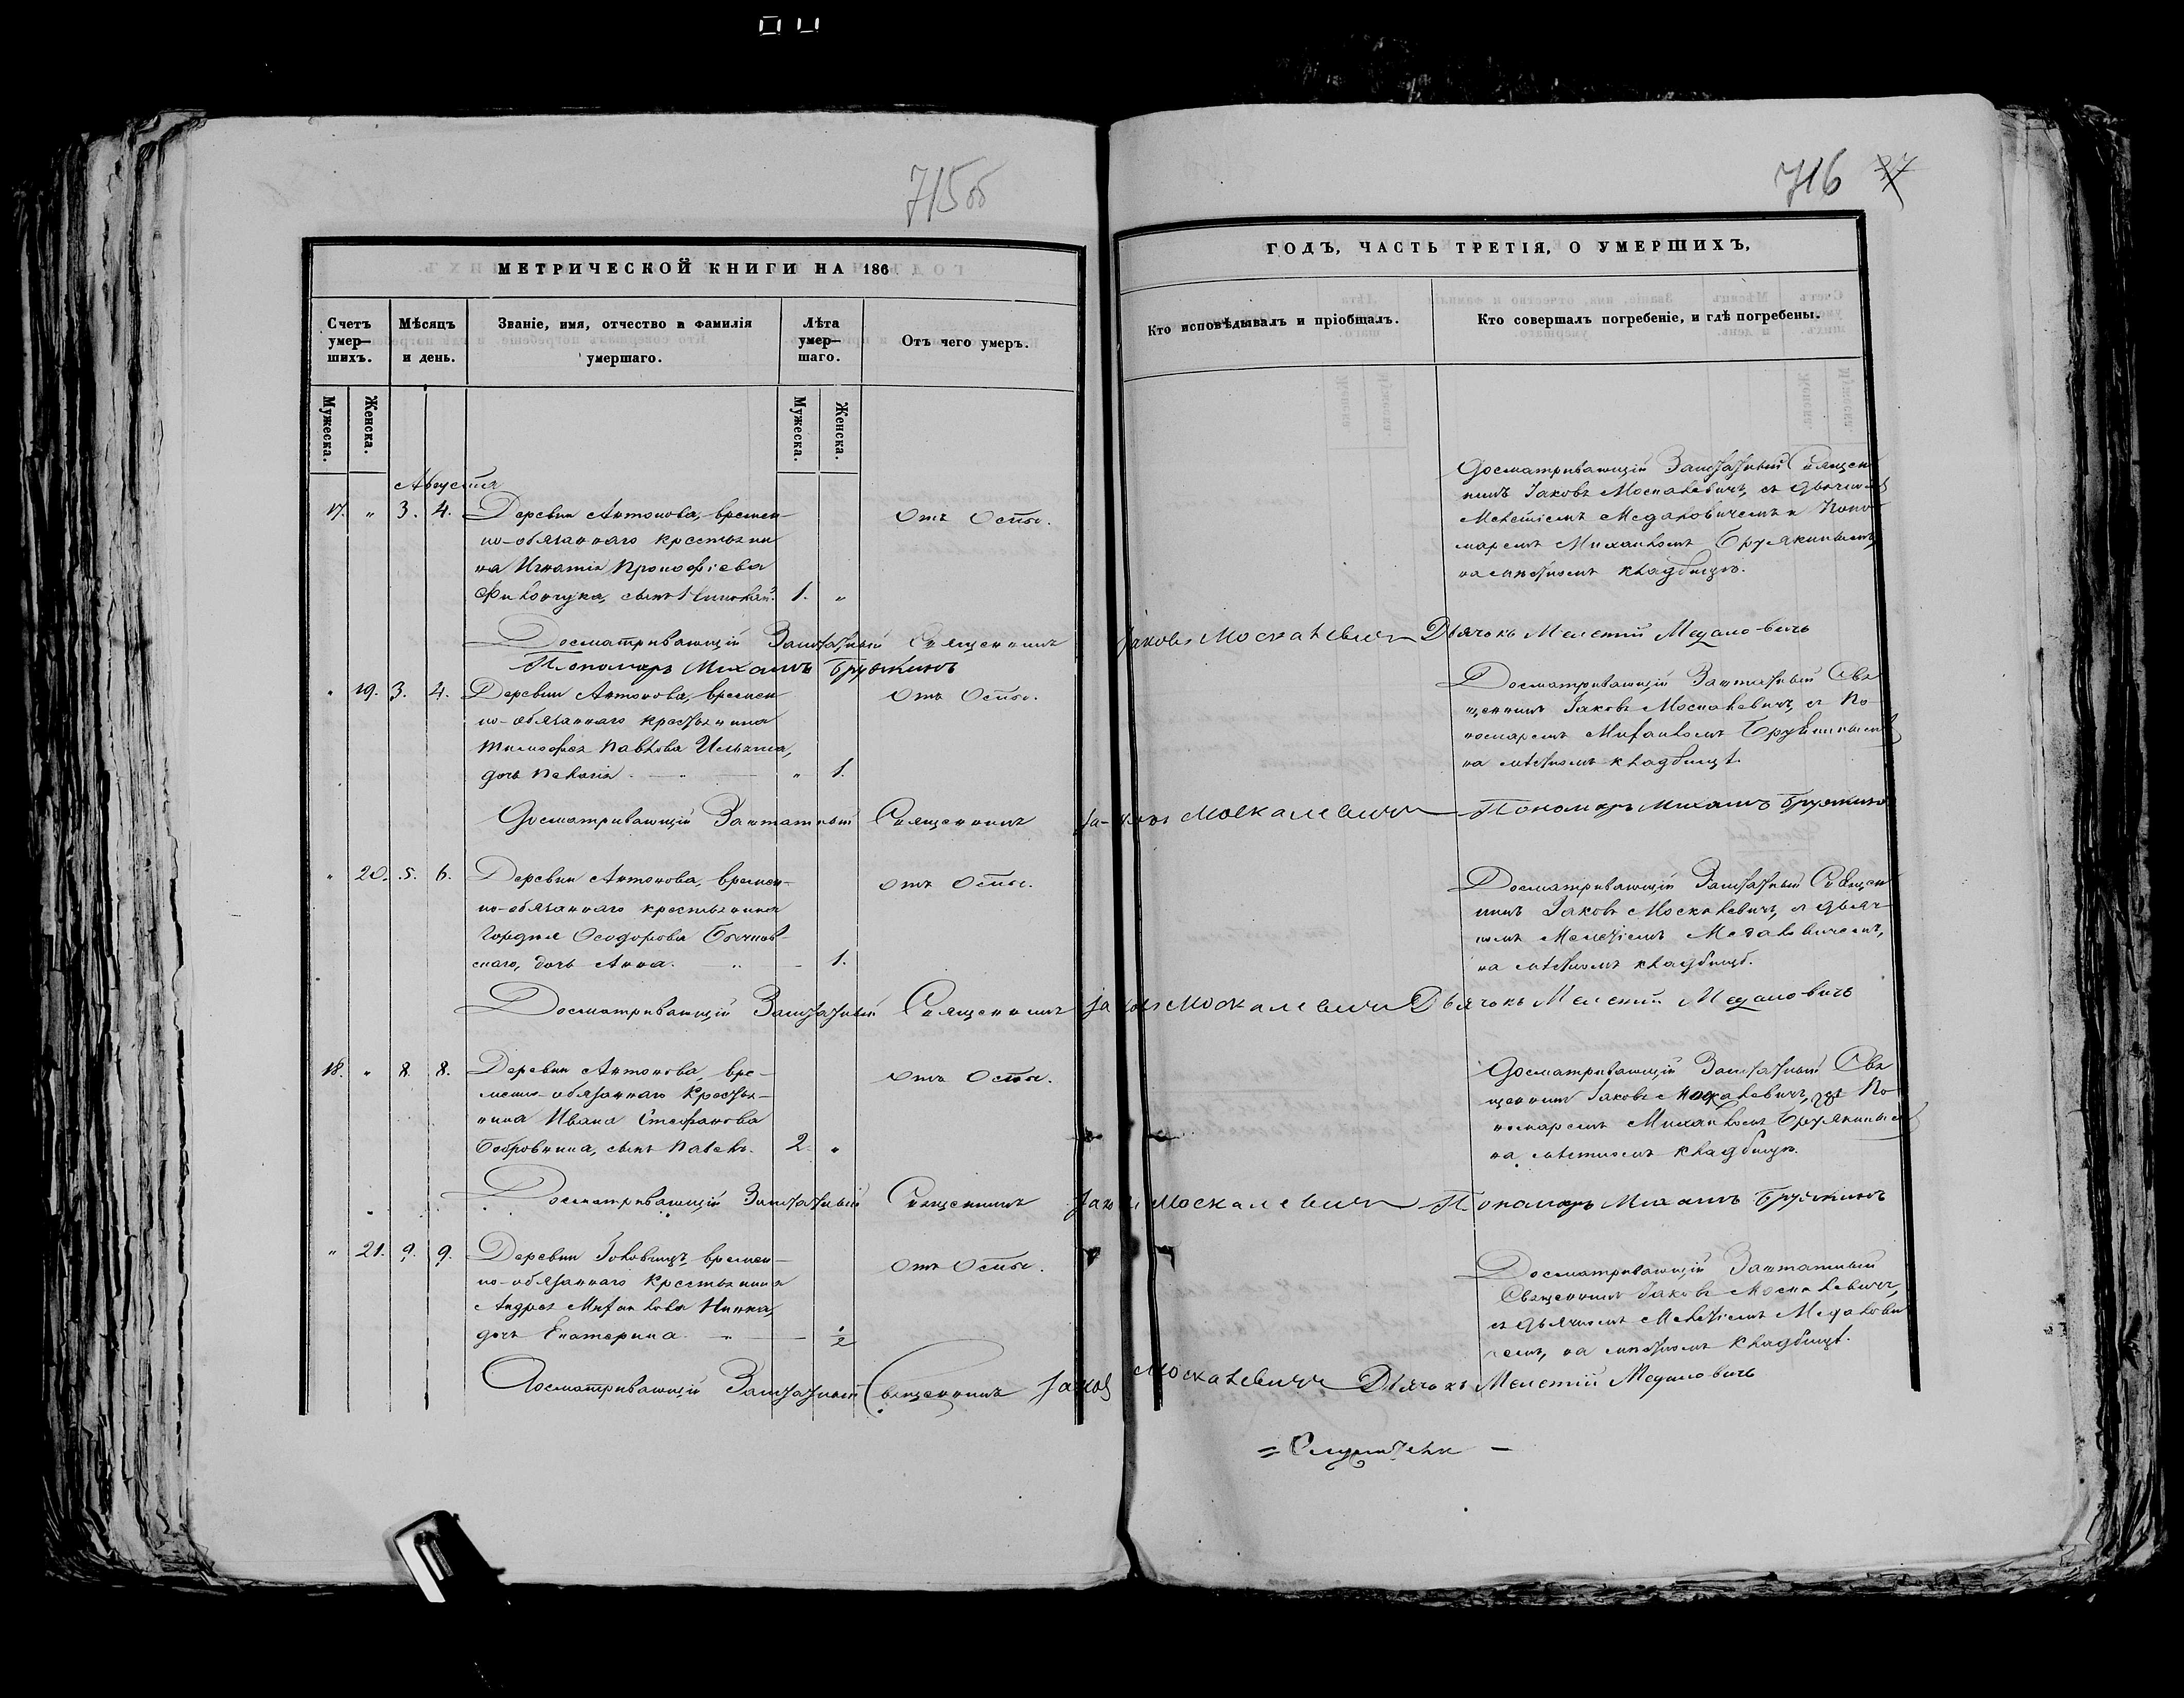 715 об
716 27
МЕТРИЧЕСКОЙ КНИГИ НА 186
ГОДЪ, ЧАСТЬ ТРЕТІЯ, О УМЕРШИХЪ,
Счетъ умер—шихъ.
Мѣсяцъ и день.
Званіе, имя, отчество и фамилія умершаго.
Лѣта умер—шаго.
Отъ чего умеръ.
Кто исповѣдывалъ и пріобщалъ.
Кто совершалъ погребеніе, и гдѣ погребены.
Мужеска.
Женска.
Мужеска.
Женска.
Августа
17. " 3. 4. Деревни Антонова, времен-
но-обязаннаго крестьяни
на Игнатія Прокофіева
сынъ 1. "
Отъ Оспы.
Досматривающій Заштатный Священ
никъ Іаковъ Москалевичъ, съ дьячкомъ
Мелетіемъ Медаловичемъ и Поно
маремъ Михаиломъ
на мѣстномъ кладбищѣ.
Досматривающій Заштатный Священникъ Іаковъ Москалевичъ Дьячокъ Мелетій Медаловичъ
Пономарь Михаилъ
" 19. 3. 4. Деревни Антонова, времен
но-обязаннаго крестьянина
Тимофея Павлова
дочь Пелагія. " 1.
Отъ Оспы.
Досматривающій Заштатный Свя
щенникъ Іаковъ Москалевичъ, съ По
номаремъ Михаиломъ
на мѣстномъ кладбищѣ.
Досматривающій Заштатный Священникъ Іаковъ Москалевичъ Пономарь Михаилъ
" 20. 5. 6. Деревни Антонова, времен-
но-обязаннаго крестьянина
Гордѣя Ѳеодорова
скаго, дочь Анна. " 1.
Отъ Оспы.
Досматривающій Заштатный Священ
никъ Іаковъ Москалевичъ, съ дьяч-
комъ Мелетіемъ Медаловичемъ,
на мѣстномъ кладбищѣ.
Досматривающій Заштатный Священникъ Іаковъ Москалевичъ Дьячокъ Мелетій Медаловичъ
18. " 8. 8. Деревни Антонова, вре-
менно-обязаннаго крестья-
нина Ивана Стефанова
Бобровника, сынъ Павелъ. 2. "
Отъ Оспы.
Досматривающій Заштатный Свя
щенникъ Іаковъ Москалевичъ, съ По
номаремъ Михаиломъ
на мѣстномъ кладбищѣ.
Досматривающій Заштатный Священникъ Іаковъ Москалевичъ Пономарь Михаилъ
" 21. 9. 9. Деревни времен-
но-обязаннаго крестьянина
Андрея Михаилова
дочь Екатерина. " 1/2
Отъ Оспы.
Досматривающій Заштатный
Священникъ Іаковъ Москалевичъ,
съ дьячкомъ Мелетіемъ Медалови
чемъ, на мѣстномъ кладбищѣ.
Досматривающій Заштатный Священникъ Іаковъ Москалевичъ Дьячокъ Мелетій Медаловичъ